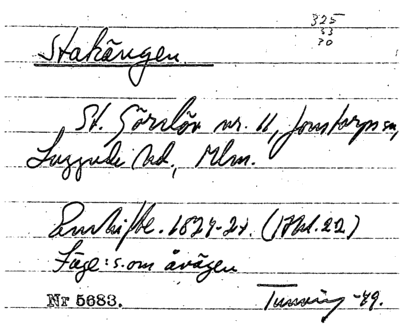 325
53
70
Stakängen.
St. Görslöv nr. 11, Jonstorps sn,
Luggude hd, Mlm.
Enskifte. 1827-28. (Akt. 22)
Läge: s. om åvägen
Nr 5683. Tunving -79.